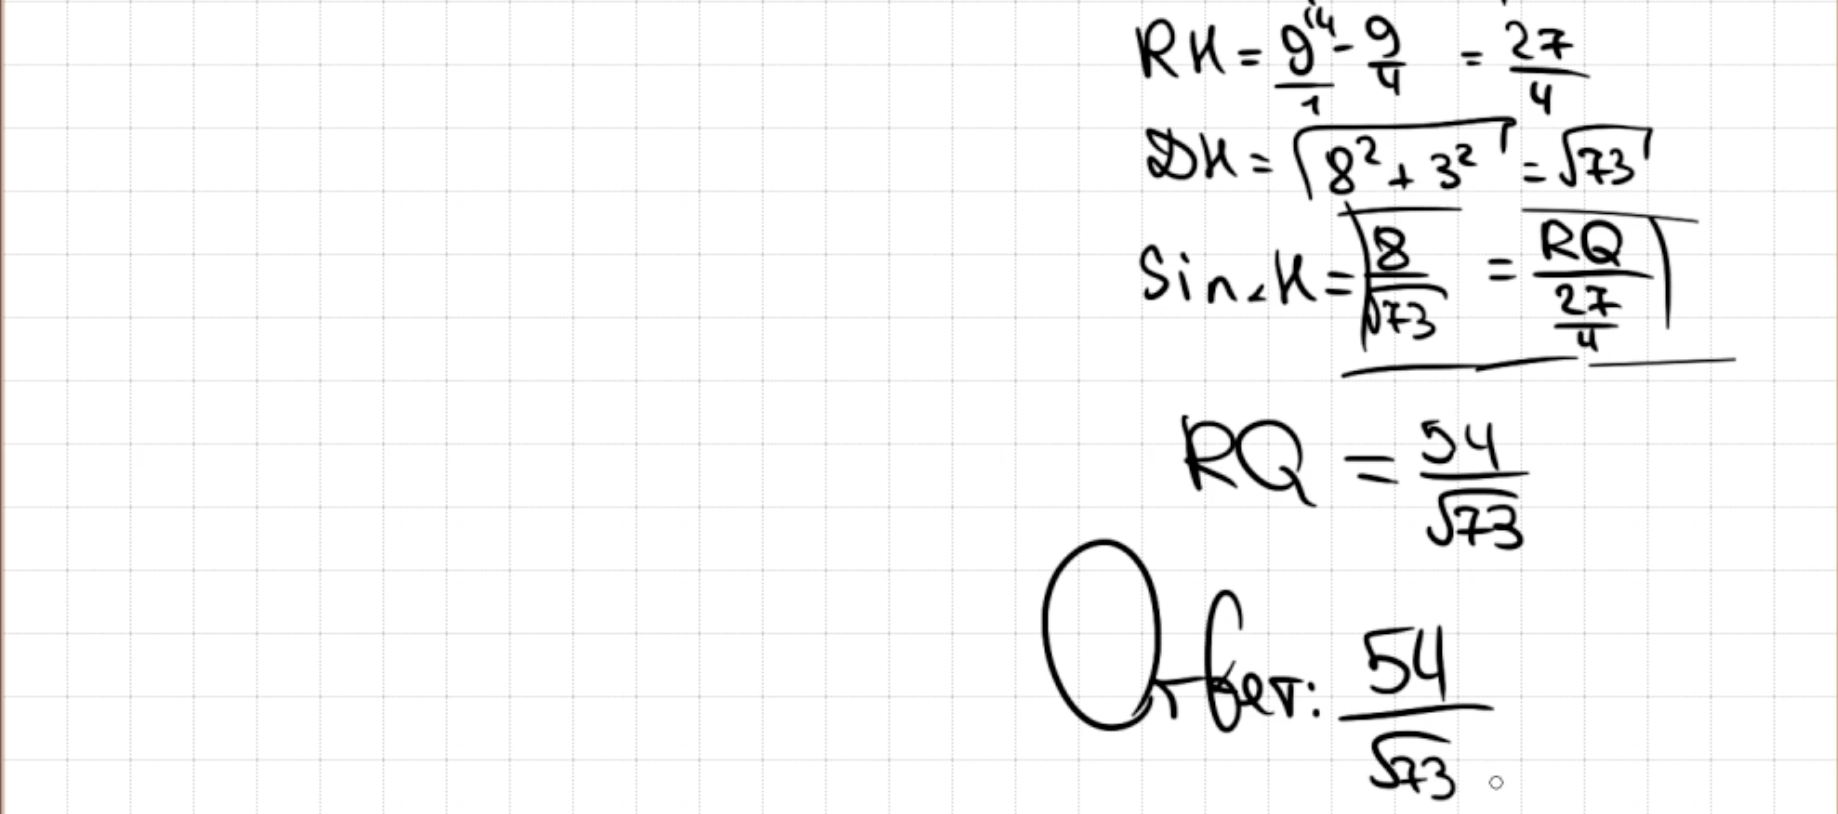 RK = 9/1 \4 - 9/4 = 27/4
DK = √(8² + 3²) = √73
Sin∠K = 8/√73 = RQ/(27/4)
RQ = 54/√73
Ответ: 54/√73